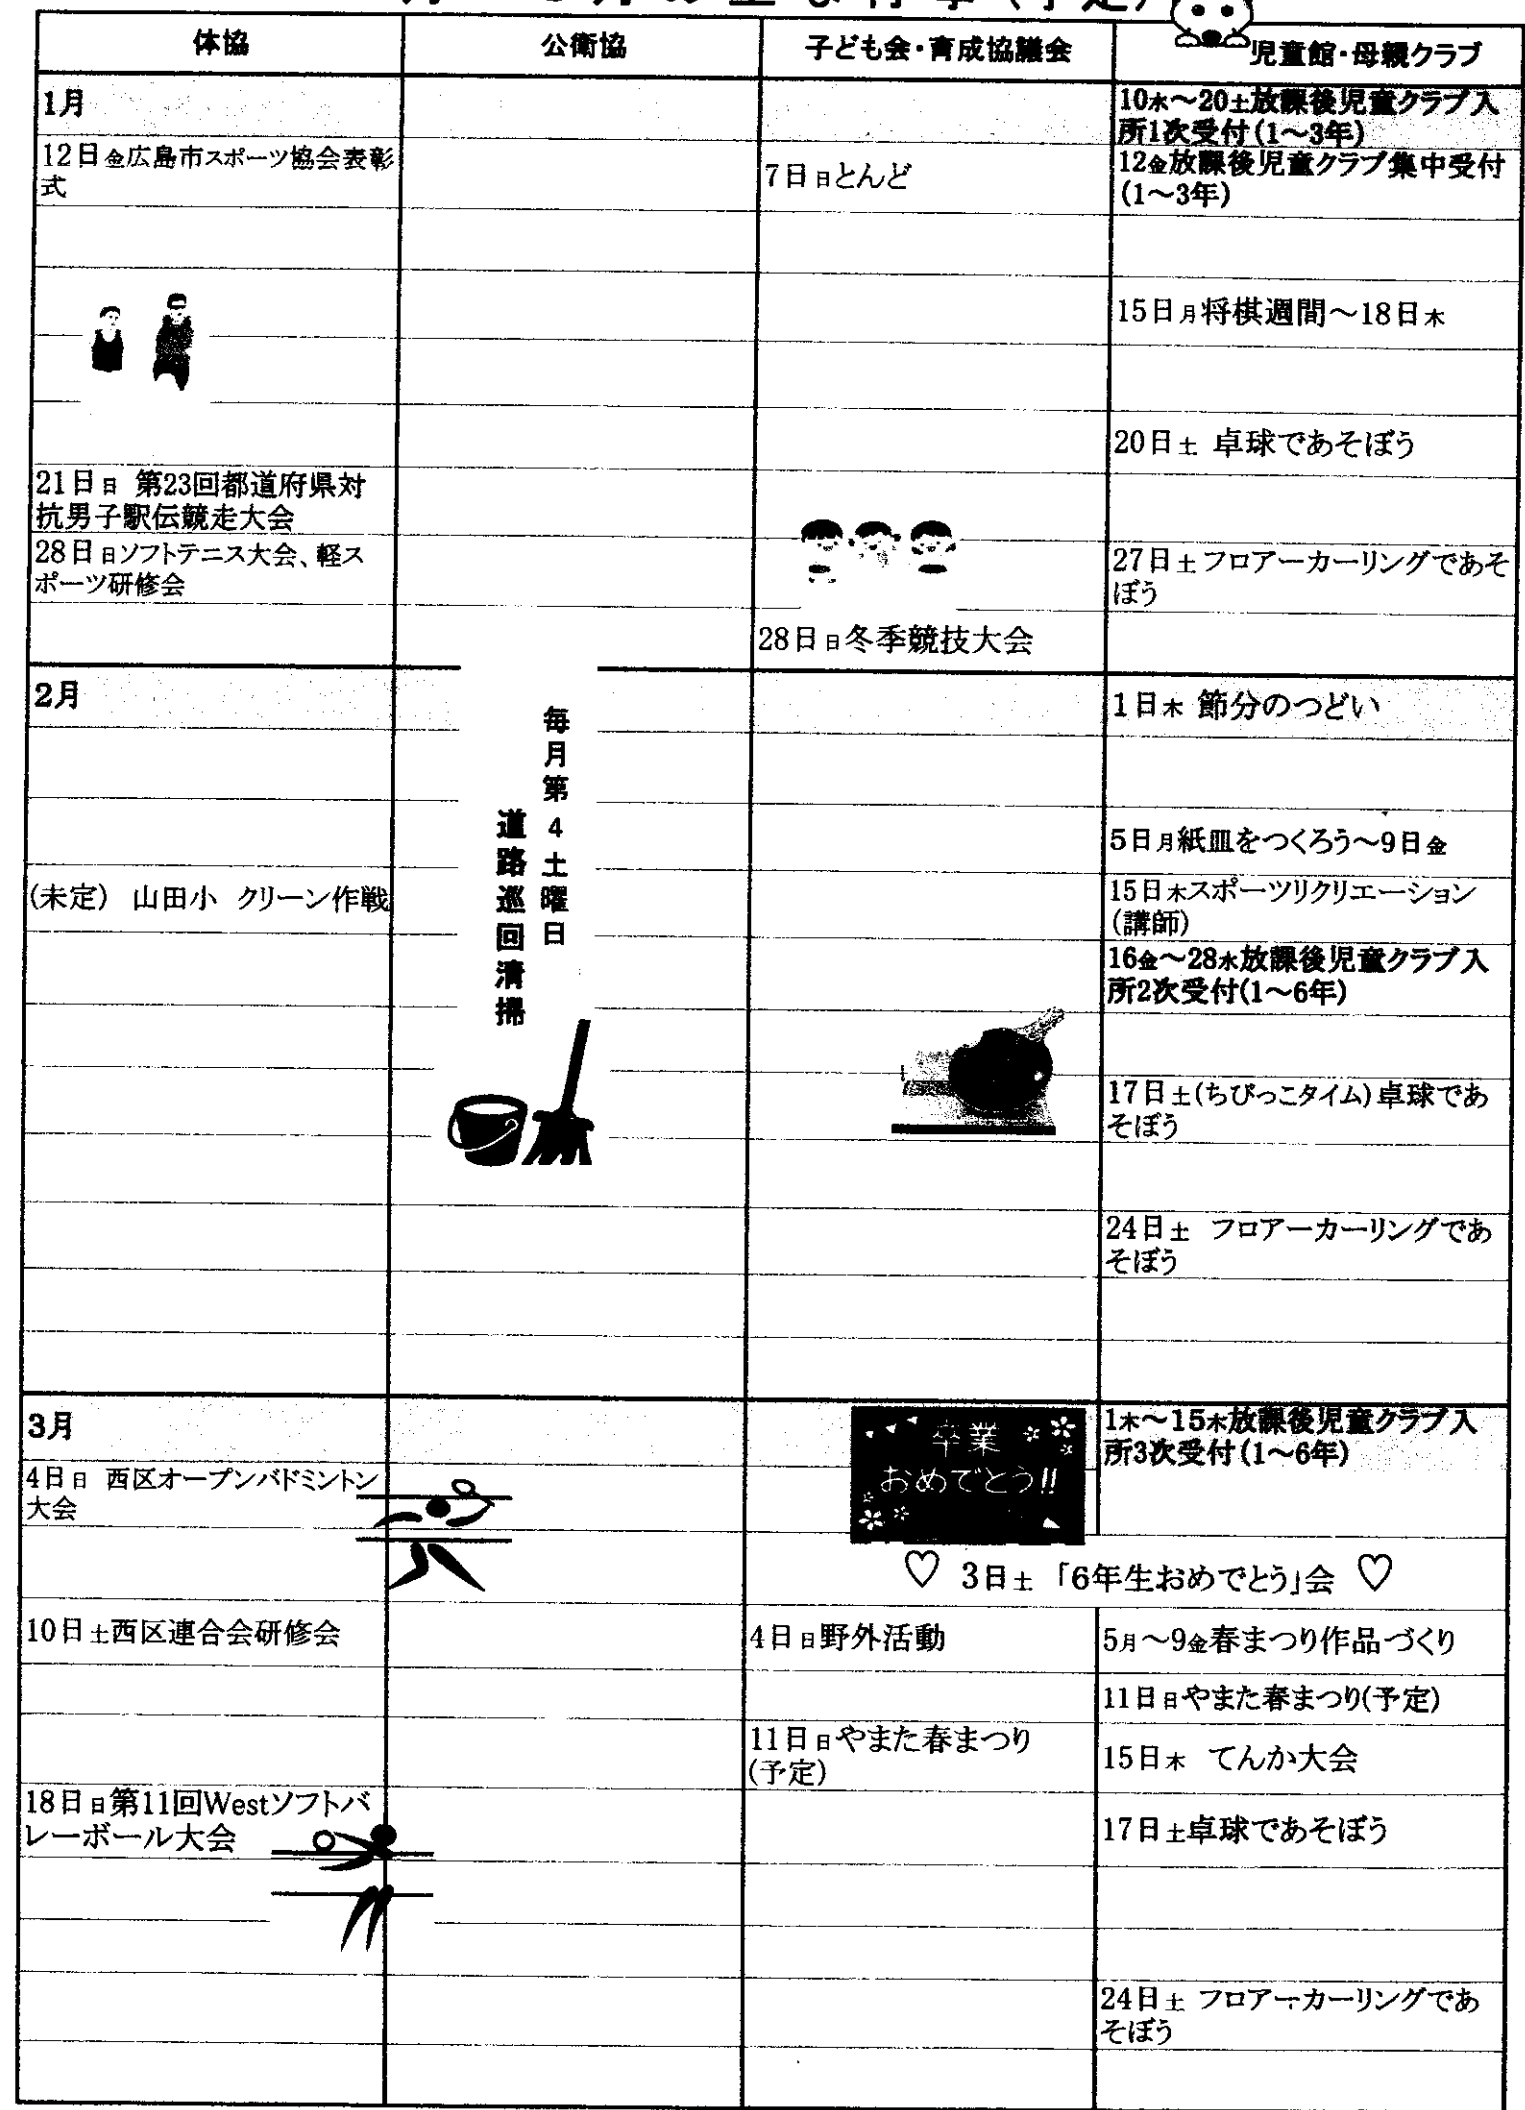 体協
公衛協
子ども会・育成協議会
児童館・母親クラブ
1月
10水～20土放課後児童クラブ入
所1次受付(1～3年)
12日金広島市スポーツ協会表彰
式
7日日とんど
12金放課後児童クラブ集中受付
(1～3年)
15日月将棋週間～18日木
20日土 卓球であそぼう
21日日 第23回都道府県対
抗男子駅伝競走大会
28日日ソフトテニス大会、軽ス
ポーツ研修会
27日土フロアーカーリングであそ
ぼう
28日日冬季競技大会
2月
毎月第4土曜日
道路巡回清掃
1日木 節分のつどい
5日月紙皿をつくろう～9日金
(未定) 山田小 クリーン作戦
15日木スポーツリクリエーション
(講師)
16金～28水放課後児童クラブ入
所2次受付(1～6年)
17日土(ちびっこタイム)卓球であ
そぼう
24日土 フロアーカーリングであ
そぼう
3月
卒業
おめでとう!!
1木～15木放課後児童クラブ入
所3次受付(1～6年)
4日日 西区オープンバドミントン
大会
♡ 3日土 「6年生おめでとう」会 ♡
10日土西区連合会研修会
4日日野外活動
5月～9金春まつり作品づくり
11日日やまた春まつり(予定)
11日日やまた春まつり
(予定)
15日木 てんか大会
18日日第11回Westソフトバ
レーボール大会
17日土卓球であそぼう
24日土 フロアーカーリングであ
そぼう